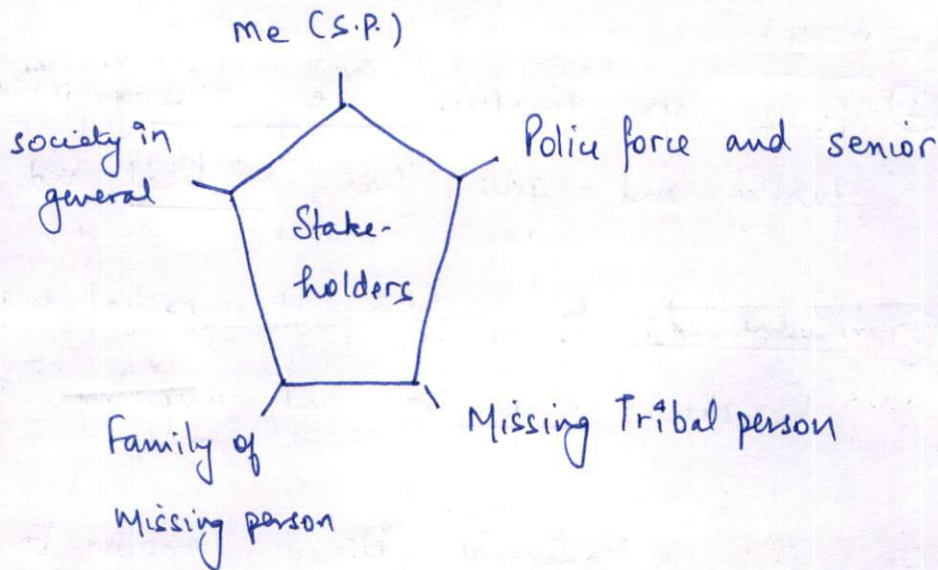 Me (S.P.)
society in
general
Police force and senior
Stake-
holders
Family of
Missing person
Missing Tribal person